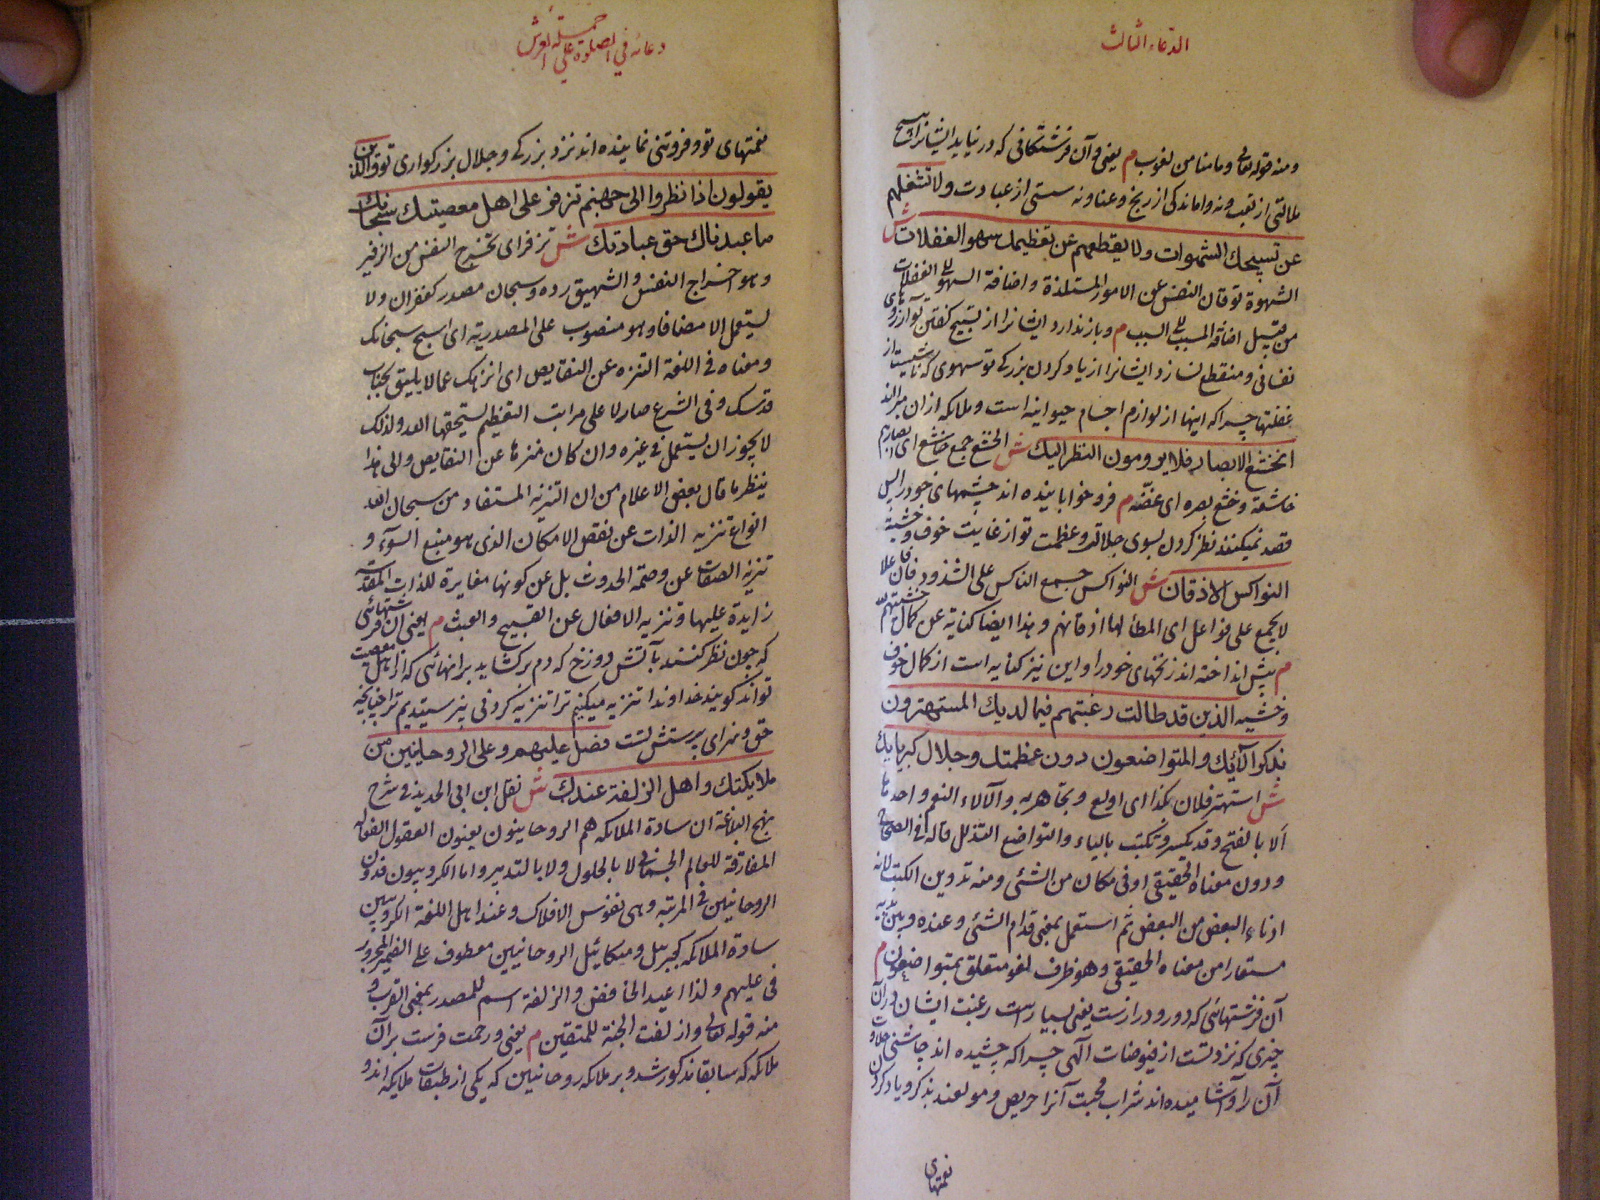 الدعاء الثالث
ومنه قوله تعالى وما مسنا من لغوب م يعنى وآن فرشتكانى كه در نيايد ايشانرا از تسبيح
ملالتى از تعب ونه واماندكى از رنج وعنا ونه سستى از عبادت ولا تشغلهم
عن تسبيحك الشهوات ولا يقطعهم عن تعظيمك سهو الغفلات ش
الشهوة توقان النفس عن الامور المستلذة واضافة السهو الى الغفلات
من قبيل اضافة المسبب الى السبب م وباز ندارد ايشانرا از تسبيح كفتن تو آرزوهاى
نفسانى ومنقطع نسازد ايشانرا از ياد كردن بزركى تو سهوى كه ناشيست از
غفلتها چراكه اينها از لوازم اجسام حيوانيه است وملائكه از ان مبرااند
الخشع الابصار فلا يرومون النظر اليك ش الخشع جمع خاشع اى ابصارهم
خاشعة وخشع بصره اى غضه م فرو خوابانيده اند چشمهاى خود را پس
قصد نميكنند نظر كردن بسوى جلالت وعظمت تو از غايت خوف وخشية
النواكس الاذقان ش النواكس جمع الناكس على الشذوذ فان فاعلا
لا يجمع على فواعل اى المطأطئوا اذقانهم وهذا ايضا كناية عن كمال خشيتهم
م پيش انداخته اند زنخهاى خود را واين نيز كنايه است از كمال خوف
وخشيه الذين قد طالت رغبتهم فيما لديك المستهترون
بذكر آلائك والمتواضعون دون عظمتك وجلال كبريائك
ش استهتر فلان بكذا اى اولع وتجاهر به والآلاء النعم واحدها
ألا بالفتح وقد يكسر وتكتب بالياء والتواضع التذلل قاله فى الصحاح
ودون معناه الحقيقى ادنى مكان من الشئ ومنه تدوين الكتب لانه
ادناء البعض من البعض ثم استعمل بمعنى قدام الشئ وعنده وبين يديه
مستعارا من معناه الحقيقى وهو ظرف لغو متعلق بمتواضعون م
آن فرشتهائى كه دور ودراز ست يعنى بسيار است رغبت ايشان در آن
چيزى كه نزد تست از فيوضات الهى چراكه چشيده اند چاشنى حلاوت
آن را وآشاميده اند شراب محبت آنرا حريص ومولعند بذكر وياد كردن
نعمتهاى
دعائه فى الصلوة على حملة العرش
نعمتهاى تو وفروتنى نماينده اند نزد بزركى وجلال بزركوارى تو والذين
يقولون اذا نظروا الى جهنم تزفر على اهل معصيتك سبحانك
ما عبدناك حق عبادتك ش تزفر اى تخرج النفس من الزفير
وهو اخراج النفس والشهيق رده وسبحان مصدر كغفران ولا
يستعمل الا مضافا وهو منصوب على المصدرية اى اسبح سبحانك
ومعناه فى اللغة التنزه عن النقايص اى انزهك عما لا يليق بجناب
قدسك وفى الشرع صار لاعلى مراتب التعظيم لا يستحقها الا الله ولذلك
لا يجوز ان يستعمل فى غيره وان كان منزها عن النقايص والى هذا
ينظر ما قال بعض الاعلام من ان التنزيه المستفاد من سبحان الله
انواع تنزيه الذات عن نقص الامكان الذى هو منبع السوء و
تنزيه الصفات عن وصمة الحدوث بل عن كونها مغايرة للذات المقدسة
زايدة عليها وتنزيه الافعال عن القبيح والعبث م يعنى آن فرشتهائى
كه چون نظر كنند بآتش دوزخ كه دم بركشايد بر انهائى كه از اهل معصيت
تواند كويند خداوندا تنزيه ميكنيم ترا تنزيه كردنى نپرستيديم ترا چنانچه
حق وسزاى پرستش تست فصل عليهم وعلى الروحانيين من
ملائكتك واهل الزلفة عندك ش نقل ابن ابى الحديد فى شرح
نهج البلاغة ان سادة الملائكه هم الروحانيون يعنون العقول الفعاله
المفارقة للعالم الجسمانى لا بالحلول ولا بالتدبير واما الكروبيون فدون
الروحانيين فى المرتبه وهى نفوس الافلاك وعند اهل اللغة الكروبيين
سادة الملائكه كجبرئيل وميكائيل الروحانيين معطوف على الضمير المجرور
فى عليهم ولذا اعيد الخافض والزلفة اسم للمصدر بمعنى القرب و
منه قوله تعالى وازلفت الجنة للمتقين م يعنى ورحمت فرست بر آن
ملائكه كه سابقا مذكور شد وبر ملائكه روحانيين كه يكى از طبقات ملايكه اند و